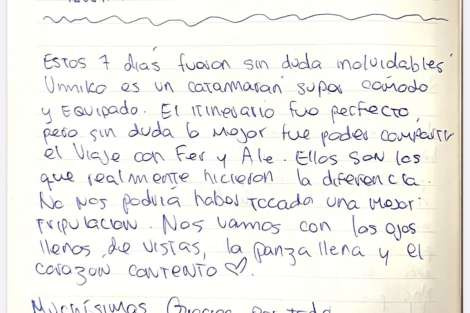 Estos 7 días fueron sin duda inolvidables
Unmiko es un catamarán super cómodo
y EQUIPADO. El ITINERARIO fue perfecto,
pero sin duda lo mejor fue poder compartir
el viaje con Fer y Ale. Ellos son los
que realmente hicieron la diferencia.
No nos podría haber tocado una mejor
tripulacion. Nos vamos con los ojos
llenos de vistas, la panza llena y el
corazon contento ♡.
Muchísimas Gracias por todo